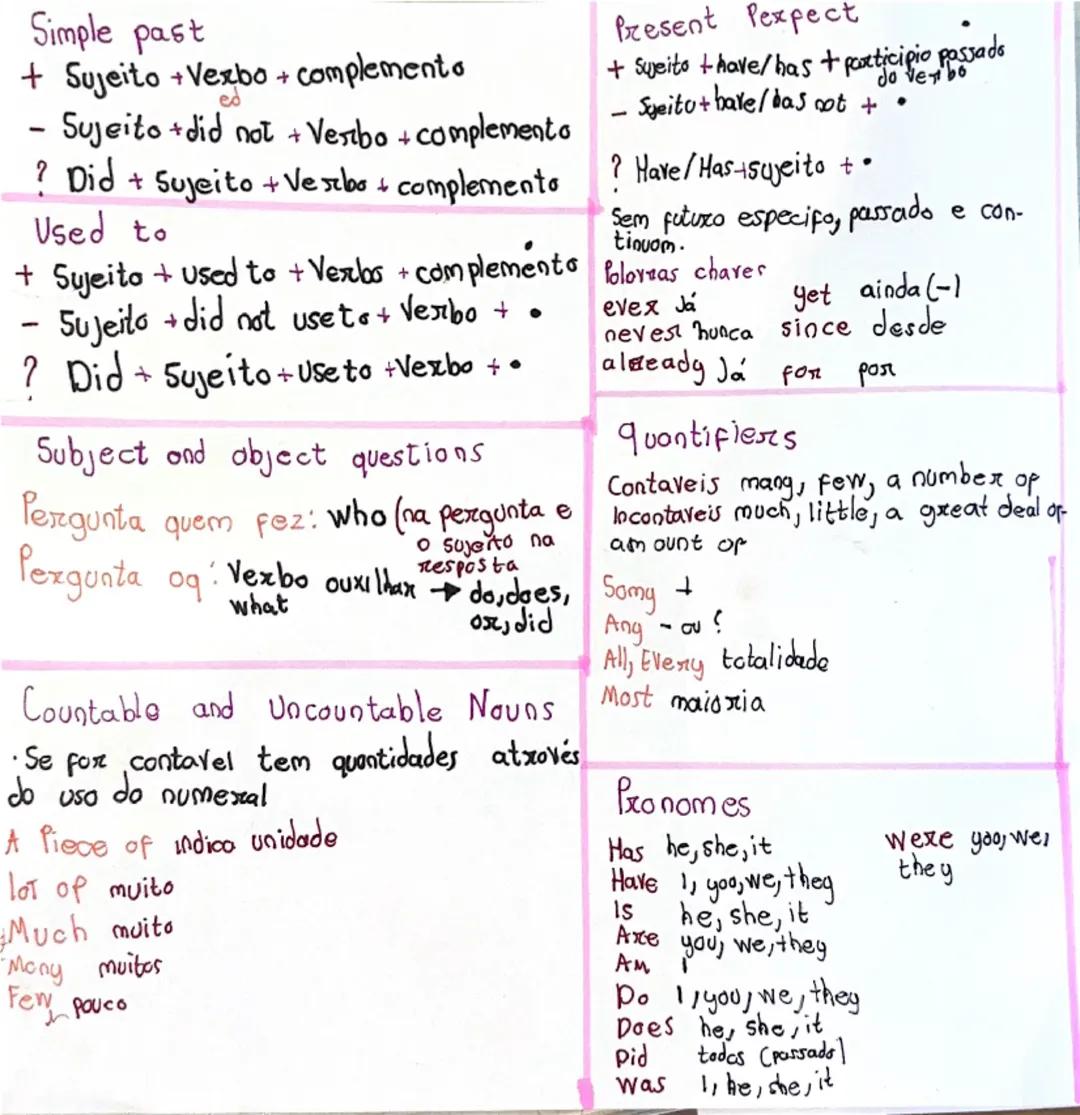 Simple past
+ Sujeito + Verbo + complemento
ed
- Sujeito + did not + Verbo + complemento
? Did + Sujeito + Verbo + complemento
Used to
+ Sujeito + used to + Verbos + complemento
- Sujeito + did not use to + Verbo + •
? Did + Sujeito + Use to + Verbo + •
Subject and object questions
Pergunta quem fez: who (na pergunta e
o sujeito na
resposta
Pergunta oq: Verbo auxilhar → do, does,
what
or, did
Countable and Uncountable Nouns
• Se for contavel tem quantidades através
do uso do numeral
A Piece of indica unidade
lot of muito
Much muito
Many muitos
Few pouco
Present Perfect
+ Sujeito + have/has + participio passado
do verbo
- Sujeito + have/has not + •
? Have/Has + sujeito + •
Sem futuro especifo, passado e con-
tinuam.
Palavras chaves
ever Já
yet ainda (-)
never nunca since desde
already Já for por
quantifiers
Contaveis many, few, a number of
Incontaveis much, little, a great deal of
amount of
Somy +
Any - ou ?
All, Every totalidade
Most maioria
Pronomes
Has he, she, it
Have I, you, we, they
Is he, she, it
Are you, we, they
Am I
Do I, you, we, they
Does he, she, it
Did todos (passado)
Was I, he, she, it
Were you, we,
they